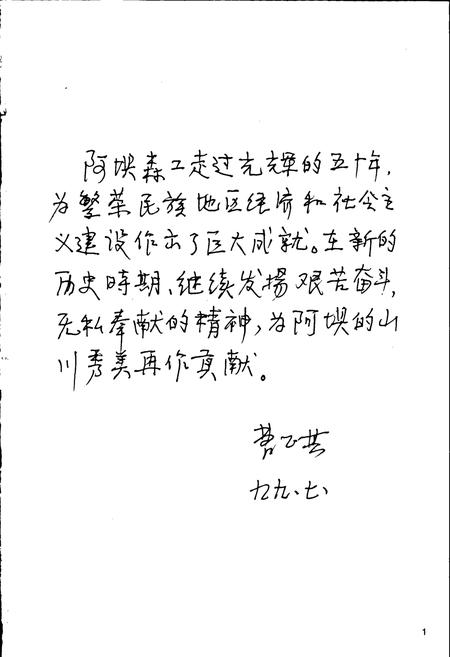 阿坝森工走过光辉的五十年,
为繁荣民族地区经济和社会主
义建设作出了巨大成就。在新的
历史時期、继续发揚艰苦奋斗,
无私奉献的精神,为阿坝的山
川秀美再作贡献。
曹正其
九九.七.
1